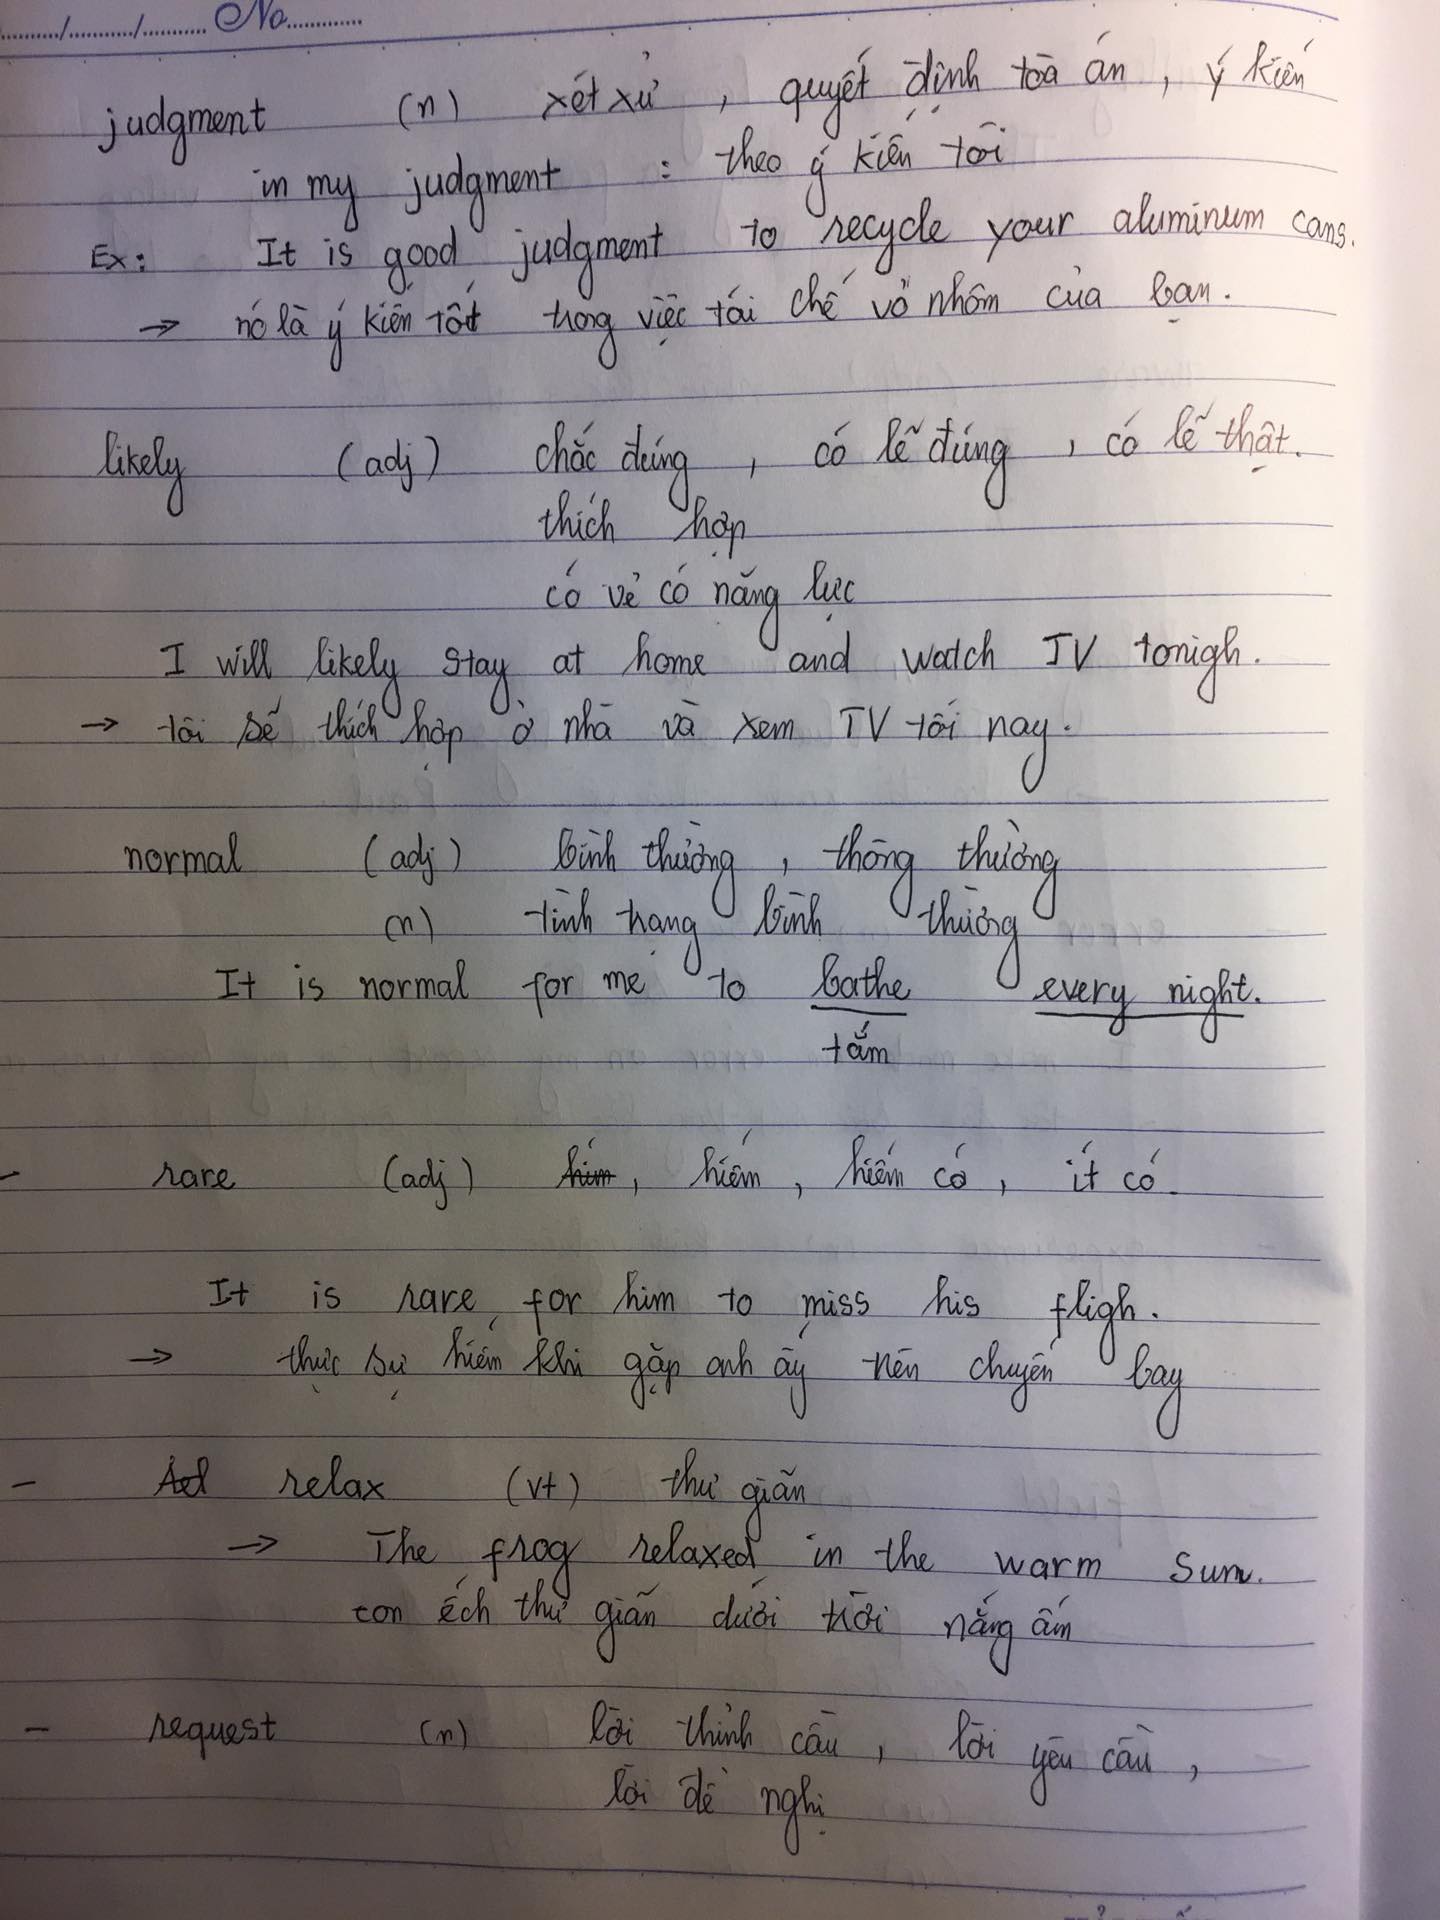 ......../........../.......... No.............
judgment (n) xét xử , quyết định toà án , ý kiến
in my judgment : theo ý kiến tôi
Ex: It is good judgment to recycle your aluminum cans.
→ nó là ý kiến tốt trong việc tái chế vỏ nhôm của bạn.
likely (adj) chắc đúng , có lẽ đúng , có lẽ thật.
thích hợp
có vẻ có năng lực
I will likely stay at home and watch TV tonigh.
→ tôi sẽ thích hợp ở nhà và xem TV tối nay.
normal (adj) bình thường , thông thường
(n) tình trạng bình thường
It is normal for me to bathe every night.
tắm
- rare (adj) , hiếm , hiếm có , ít có.
It is rare for him to miss his fligh.
→ thực sự hiếm khi gặp anh ấy nên chuyến bay
- relax (vt) thư giãn
→ The frog relaxed in the warm sun.
con ếch thư giãn dưới trời nắng ấm
- request (n) lời thỉnh cầu , lời yêu cầu ,
lời đề nghị